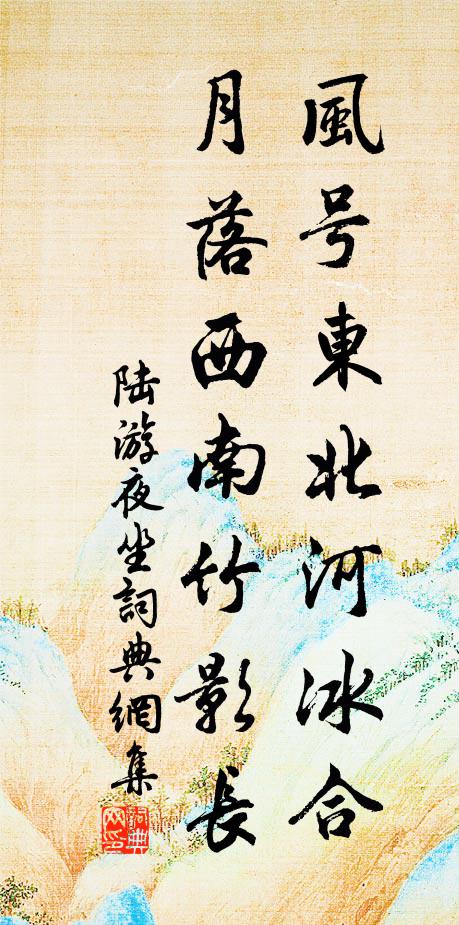 風号東北河冰合
月落西南竹影長
陸游夜坐詞典網集
詞典
网印